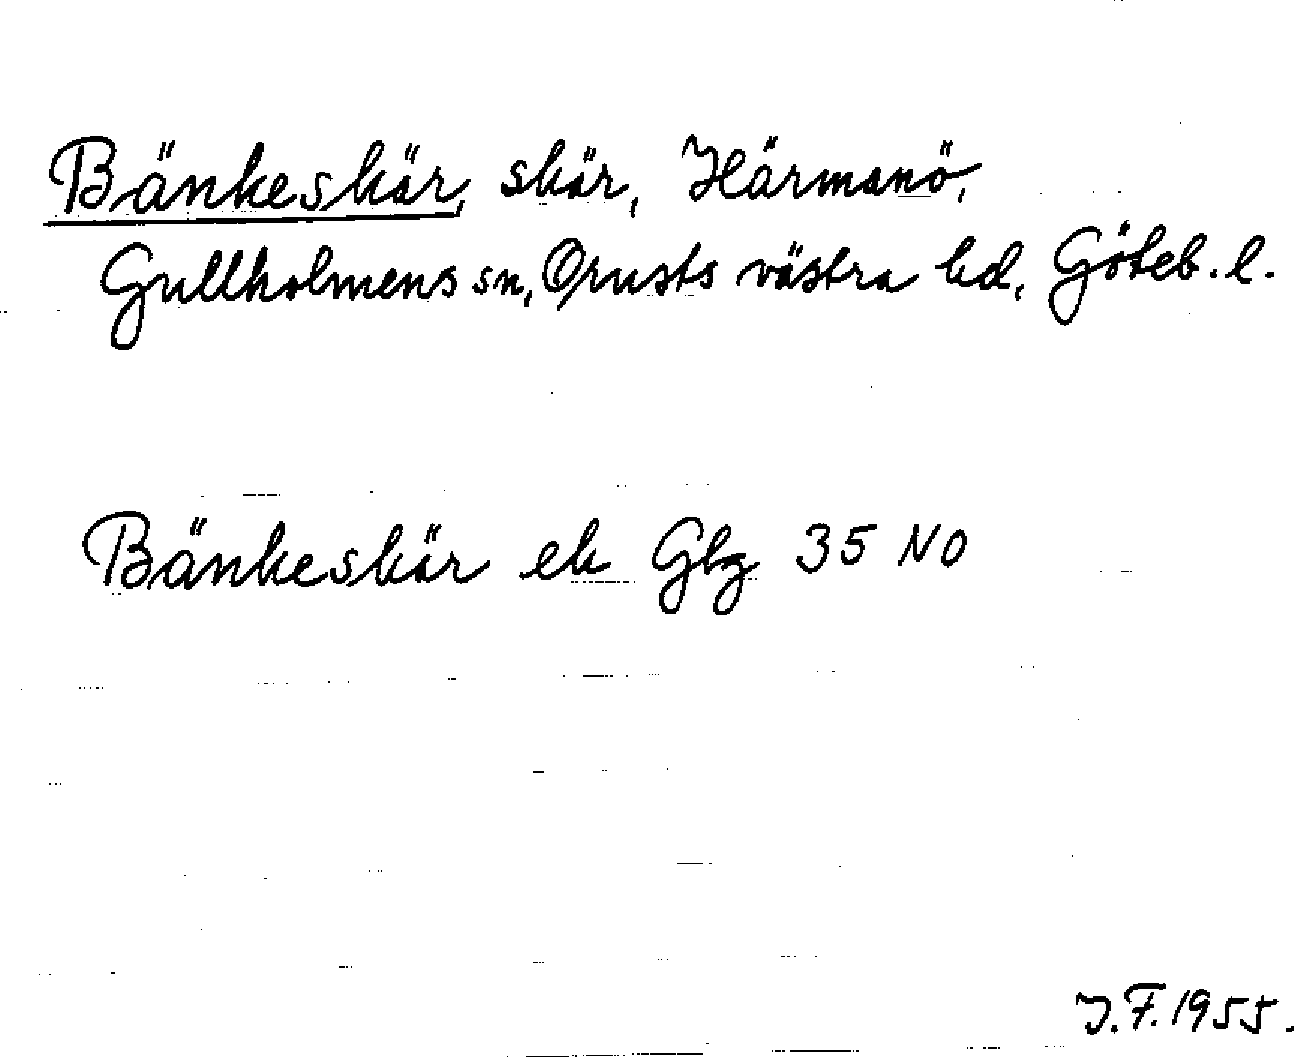 Bänkeskär, skär, Härmanö,
Gullholmens sn, Orusts västra hd, Göteb. l.
Bänkeskär ek Gbg 35 NO
I.F. 1955.